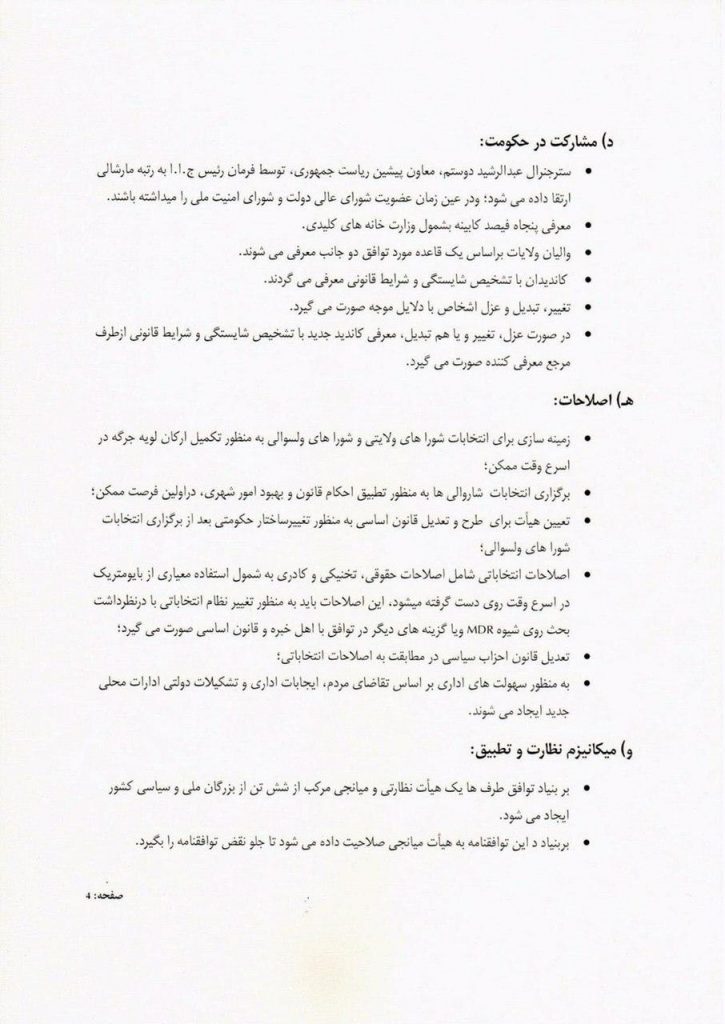 د) مشارکت در حکومت:
• سترجنرال عبدالرشید دوستم، معاون پیشین ریاست جمهوری، توسط فرمان رئیس ج.ا.ا به رتبه مارشالی
ارتقا داده می شود؛ ودر عین زمان عضویت شورای عالی دولت و شورای امنیت ملی را میداشته باشند.
• معرفی پنجاه فیصد کابینه بشمول وزارت خانه های کلیدی.
• والیان ولایات براساس یک قاعده مورد توافق دو جانب معرفی می شوند.
• کاندیدان با تشخیص شایستگی و شرایط قانونی معرفی می گردند.
• تغییر، تبدیل و عزل اشخاص با دلایل موجه صورت می گیرد.
• در صورت عزل، تغییر و یا هم تبدیل، معرفی کاندید جدید با تشخیص شایستگی و شرایط قانونی ازطرف
مرجع معرفی کننده صورت می گیرد.
هـ) اصلاحات:
• زمینه سازی برای انتخابات شورا های ولایتی و شورا های ولسوالی به منظور تکمیل ارکان لویه جرگه در
اسرع وقت ممکن؛
• برگزاری انتخابات شاروالی ها به منظور تطبیق احکام قانون و بهبود امور شهری، دراولین فرصت ممکن؛
• تعیین هیأت برای طرح و تعدیل قانون اساسی به منظور تغییرساختار حکومتی بعد از برگزاری انتخابات
شورا های ولسوالی؛
• اصلاحات انتخاباتی شامل اصلاحات حقوقی، تخنیکی و کادری به شمول استفاده معیاری از بایومتریک
در اسرع وقت روی دست گرفته میشود، این اصلاحات باید به منظور تغییر نظام انتخاباتی با درنظرداشت
بحث روی شیوه MDR ویا گزینه های دیگر در توافق با اهل خبره و قانون اساسی صورت می گیرد؛
• تعدیل قانون احزاب سیاسی در مطابقت به اصلاحات انتخاباتی؛
• به منظور سهولت های اداری بر اساس تقاضای مردم، ایجابات اداری و تشکیلات دولتی ادارات محلی
جدید ایجاد می شوند.
و) میکانیزم نظارت و تطبیق:
• بر بنیاد توافق طرف ها یک هیأت نظارتی و میانجی مرکب از شش تن از بزرگان ملی و سیاسی کشور
ایجاد می شود.
• بربنیاد د این توافقنامه به هیأت میانجی صلاحیت داده می شود تا جلو نقض توافقنامه را بگیرد.
صفحه: 4